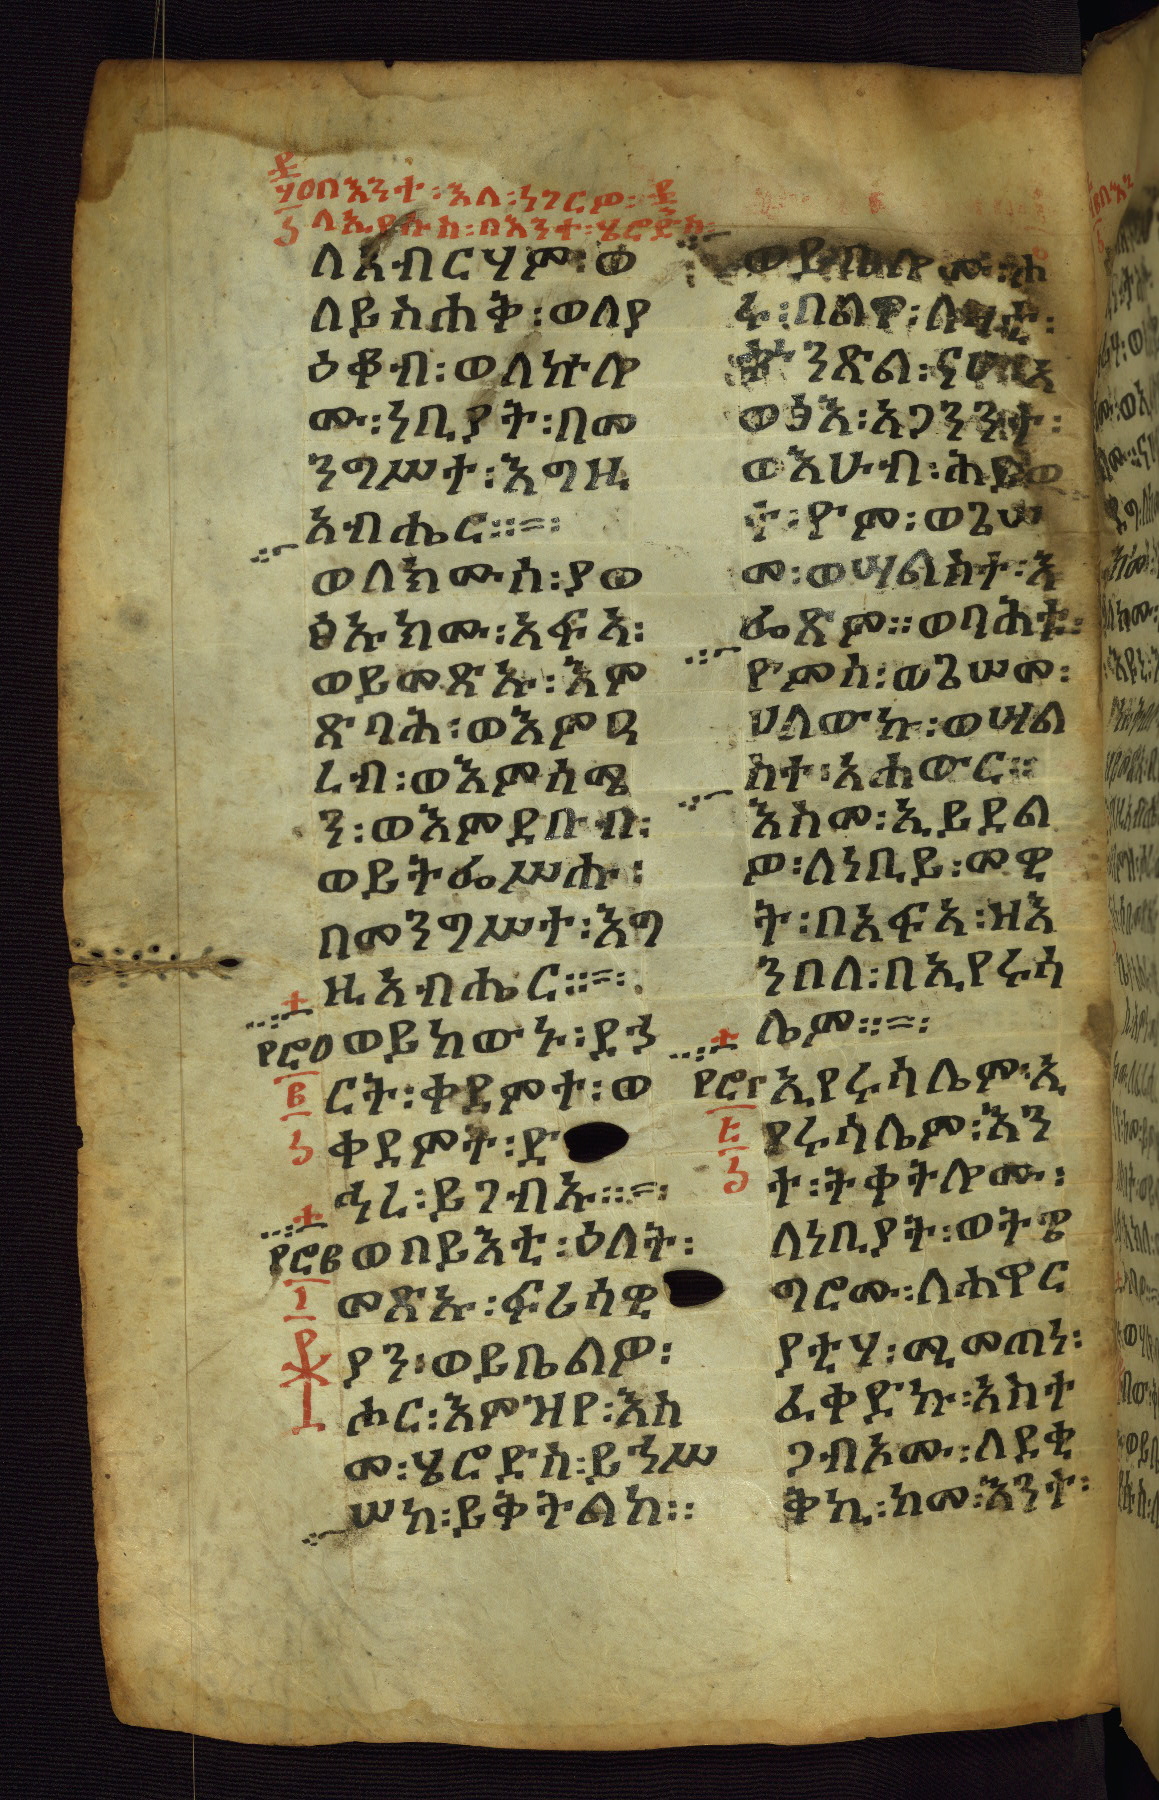 በእንተ፡ እለ፡ ነገርዎ፡
ለኢየሱስ፡ በእንተ፡ ሄሮድስ፡
ለአብርሃም፡ ወ
ለይስሐቅ፡ ወለያ
ዕቆብ፡ ወለኵሎ
ሙ፡ ነቢያት፡ በመ
ንግሥተ፡ እግዚ
አብሔር፡፡=፡
ወለክሙሰ፡ ያወ
ፅኡክሙ፡ አፍአ፡
ወይመጽኡ፡ እም
ጽባሕ፡ ወእምዓ
ረብ፡ ወእምሰሜ
ን፡ ወእምደቡብ፡
ወይትፌሥሑ፡
በመንግሥተ፡ እግ
ዚአብሔር፡፡=፡
ወይከውኑ፡ ደኃ
ርት፡ ቀደምተ፡ ወ
ቀደምት፡ ድ
ኃረ፡ ይገብኡ፡፡=፡
ወበይእቲ፡ ዕለት፡
መጽኡ፡ ፍሪሳዊ
ያን፡ ወይቤልዎ፡
ሖር፡ እምዝየ፡ እስ
መ፡ ሄሮድስ፡ ይኃሥ
ሠከ፡ ይቅትልከ፡፡
ወይቤሎሙ፡ ሑ
ሩ፡ በልዋ፡ ለዛቲ፡
ቈንጽል፡ ናሁ፡ አ
ወፅእ፡ አጋንንተ፡
ወእሁብ፡ ሕይወ
ተ፡ ዮም፡ ወጌሠ
መ፡ ወሣልስተ፡ እ
ፌጽም፡፡ ወባሕቱ፡
ዮምሰ፡ ወጌሠመ፡
ሀለውኩ፡ ወሣል
ስተ፡ አሐውር፡፡
እስመ፡ ኢይደል
ዎ፡ ለነቢይ፡ መዊ
ት፡ በአፍአ፡ ዘእ
ንበለ፡ በኢየሩሳ
ሌም፡፡=፡
ኢየሩሳሌም፡ ኢ
የሩሳሌም፡ እን
ተ፡ ትቀትሎሙ፡
ለነቢያት፡ ወትዌ
ግሮሙ፡ ለሐዋር
ያቲሃ፡ ሚመጠነ፡
ፈቀድኩ፡ እስተ
ጋብኦሙ፡ ለደቂ
ቅኪ፡ ከመ፡ እንተ፡